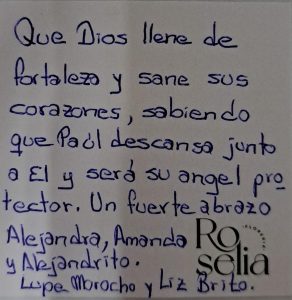 Que Dios llene de
fortaleza y sane sus
corazones, sabiendo
que Paúl descansa junto
a El y será su angel pro
tector. Un fuerte abrazo
Alejandra, Amanda
y Alejandrito.
Lupe Morocho y Liz Brito.
FLORERÍA
Roselia